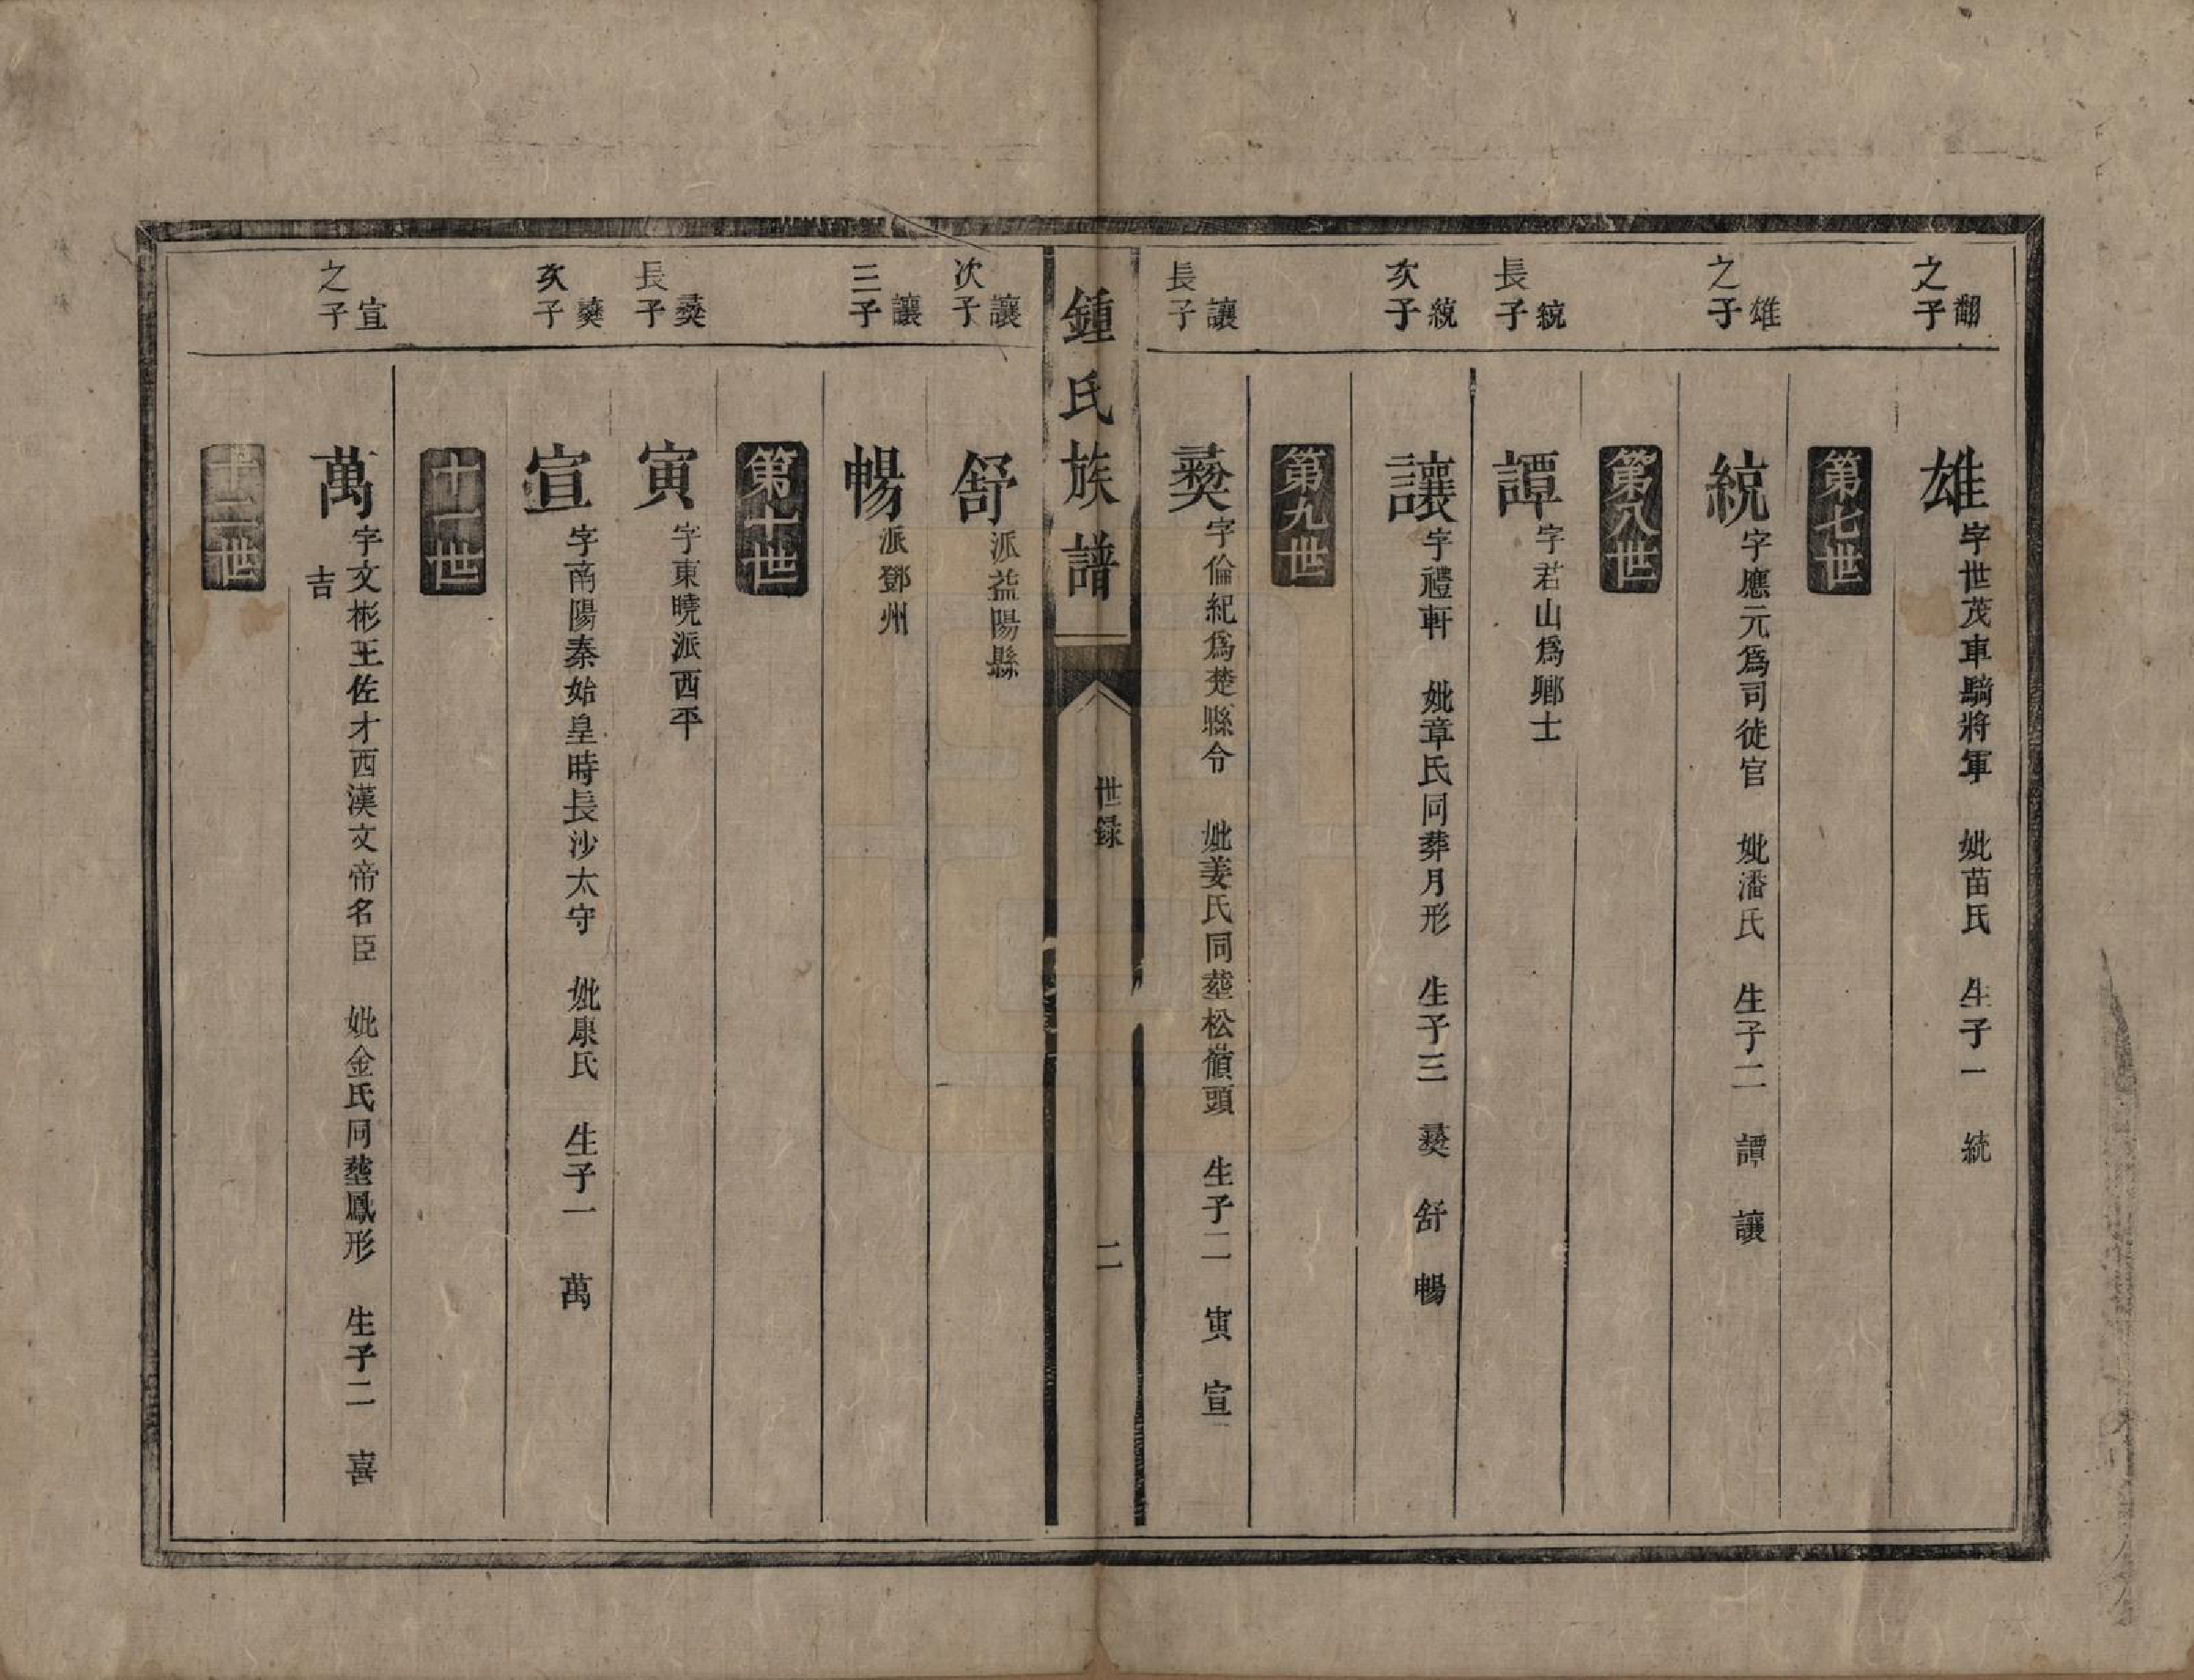 翻之子
雄 字世茂車騎將軍 妣苗氏 生子一 統
第七世
雄之子
統 字應元爲司徒官 妣潘氏 生子二 譚 讓
第八世
統長子
譚 字君山爲鄉士
統次子
讓 字禮軒 妣章氏同葬月形 生子三 彝 舒 暢
第九世
讓長子
彝 字倫紀爲楚縣令 妣姜氏同塟松嶺頭 生子二 寅 宣
鍾氏族譜 世録 二
讓次子
舒 派益陽縣
讓三子
暢 派鄧州
第十世
彝長子
寅 字東曉派西平
彝次子
宣 字南陽秦始皇時長沙太守 妣康氏 生子一 萬
十一世
宣之子
萬 字文彬王佐才西漢文帝名臣 妣金氏同塟鳳形 生子二 喜
吉
十二世